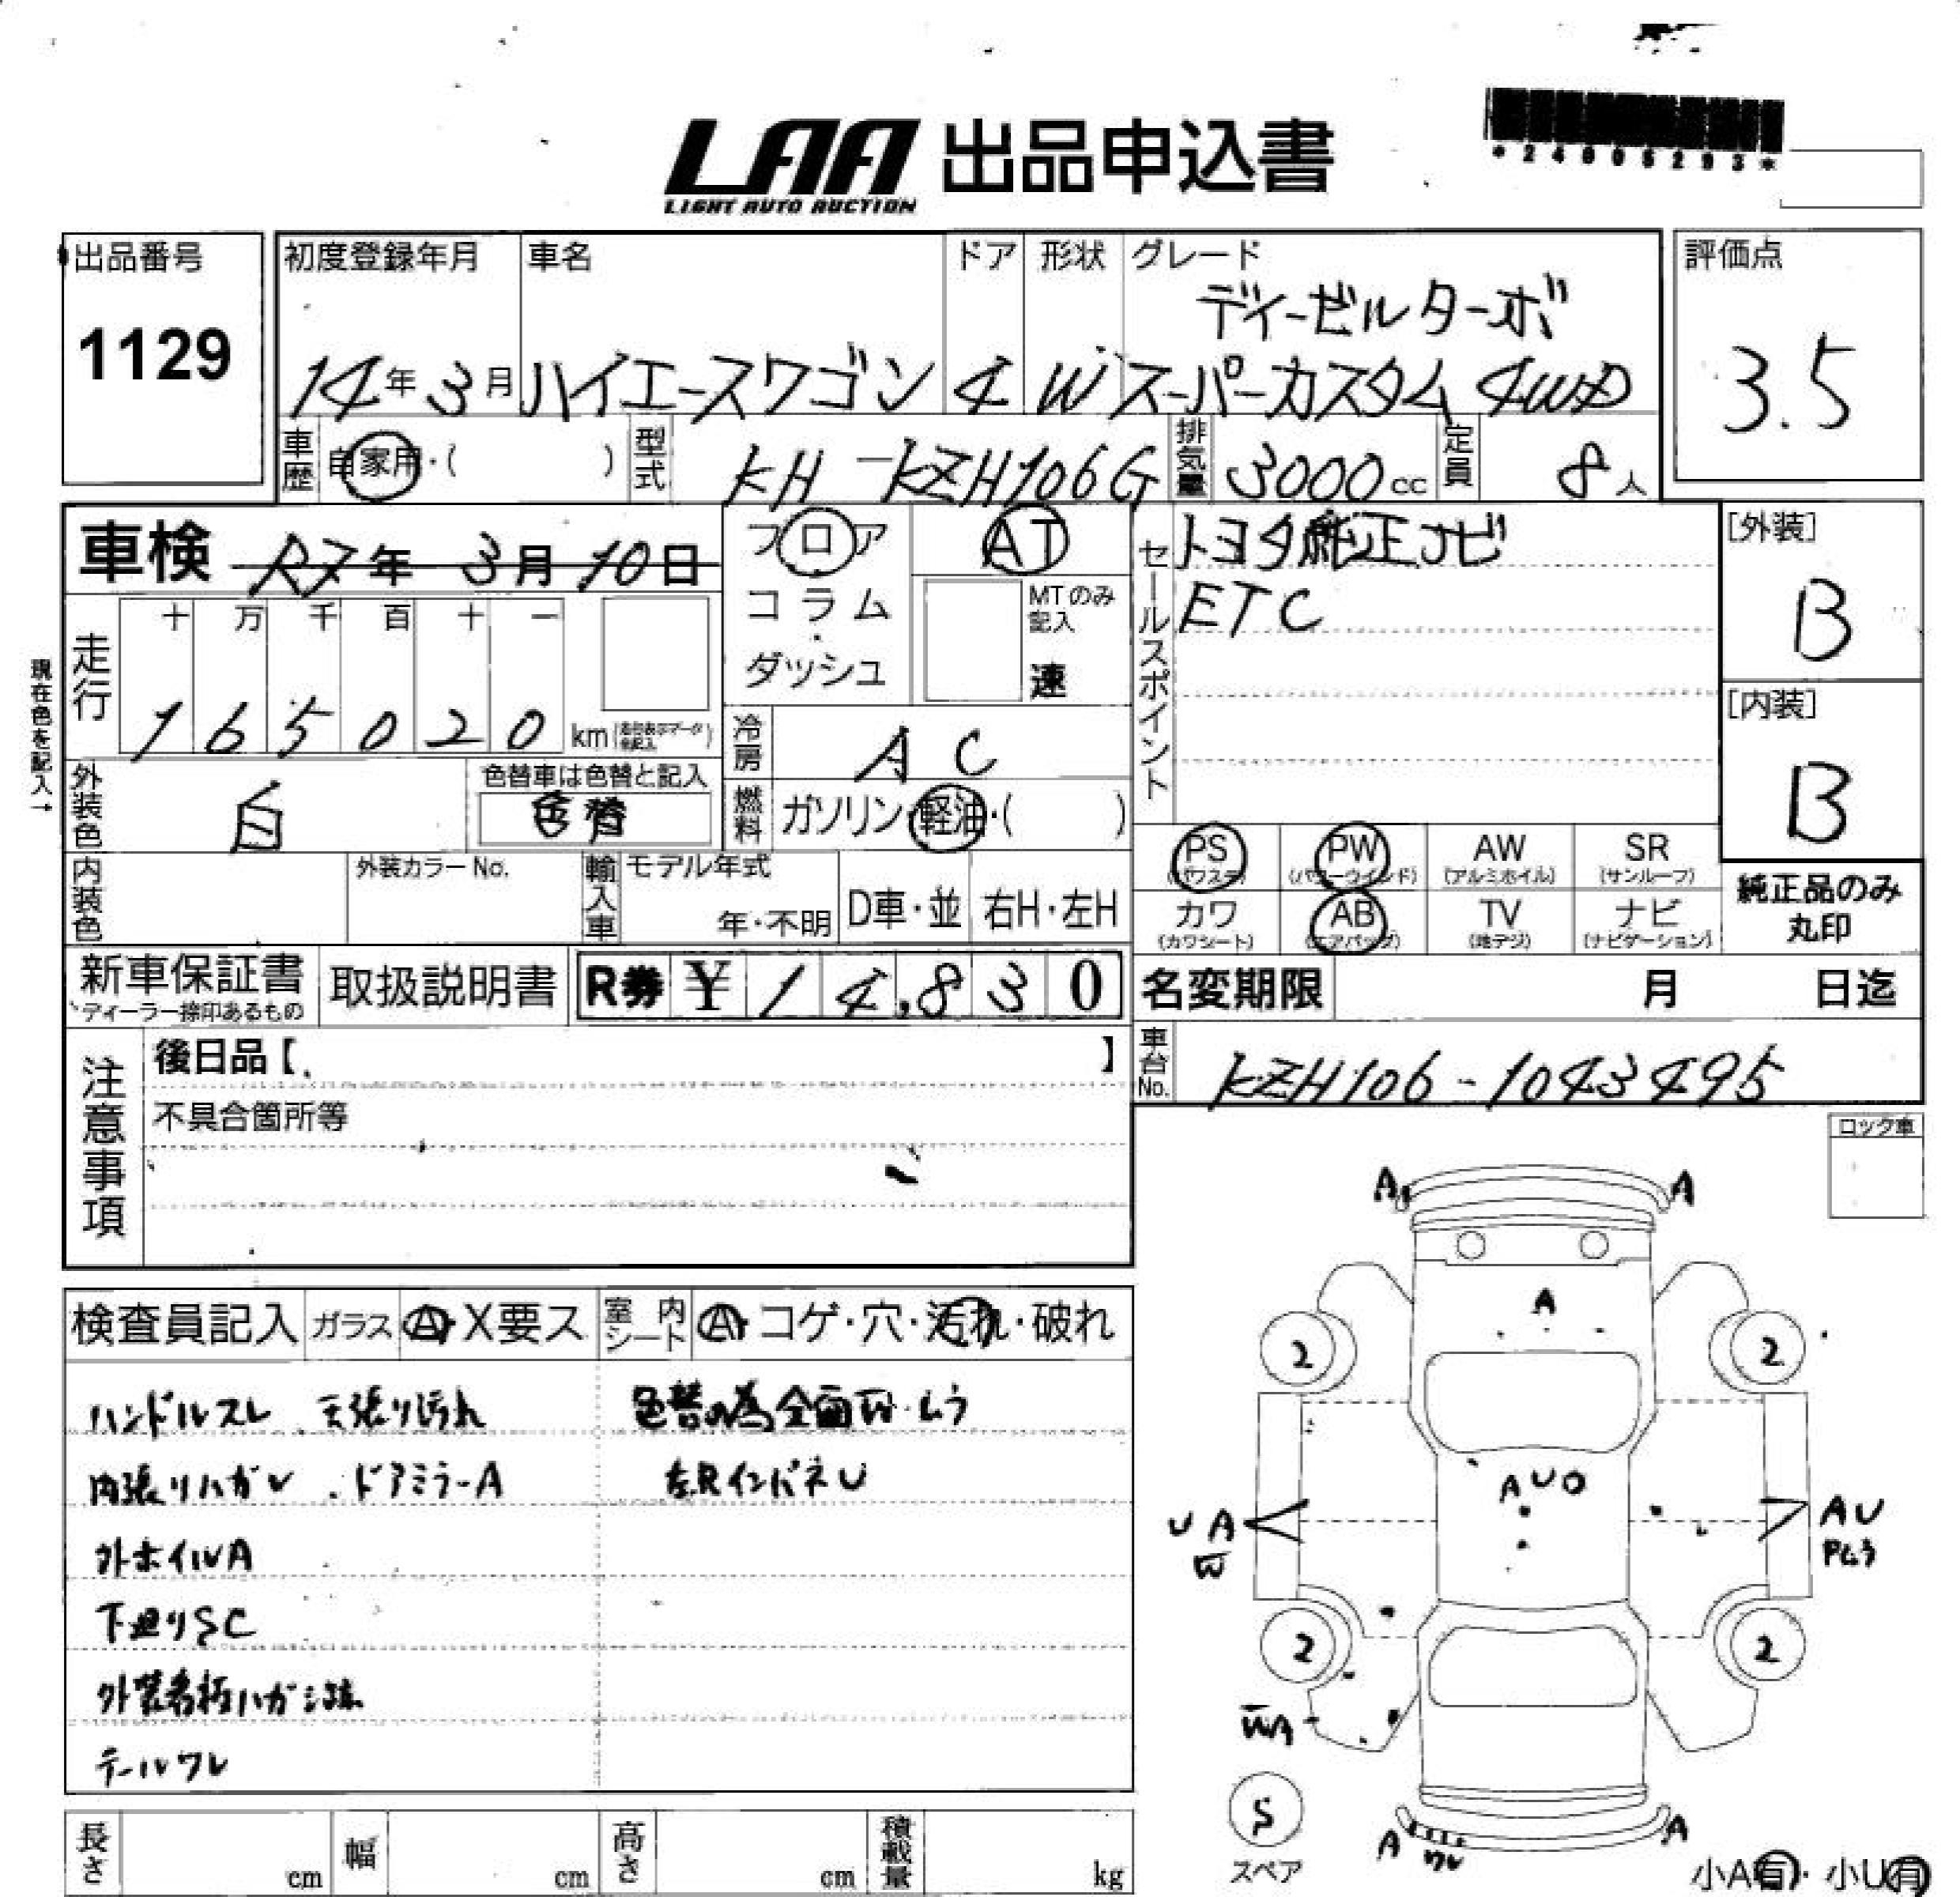 LAA 出品申込書
LIGHT AUTO AUCTION
*24006293*
出品番号
1129
初度登録年月 車名 ドア 形状 グレード
ディーゼルターボ
14年3月 ハイエースワゴン 4 W スーパーカスタム 4WD
評価点
3.5
車歴 自家用・( ) 型式 KH-KZH106G 排気量 3000cc 定員 8人
車検 R7年 3月10日
フロア
コラム
・
ダッシュ
AT
MTのみ記入
速
セールスポイント
トヨタ純正ナビ
ETC
[外装]
B
[内装]
B
現在色を記入→
走行
十 万 千 百 十 一
1 6 5 0 2 0 km
冷房 AC
外装色 白
色替車は色替と記入
色替
燃料 ガソリン・軽油・( )
内装色 外装カラーNo. 輸入車 モデル年式
年・不明 D車・並 右H・左H
PS PW AW SR
(パワステ) (パワーウインド) (アルミホイル) (サンルーフ)
カワ AB TV ナビ
(カワシート) (エアバッグ) (地デジ) (ナビゲーション)
純正品のみ
丸印
新車保証書
ディーラー捺印あるもの
取扱説明書 R券 ¥14,830
名変期限 月 日迄
車台No. KZH106-1043495
注意事項
後日品【 】
不具合箇所等
ロック車
検査員記入 ガラス A・X要ス 室内シート A・コゲ・穴・汚れ・破れ
ハンドルスレ 天張り汚れ 色替の為全面 ムラ
内張りハガレ ドアミラーA 左RインパネU
外ホイルA
下廻りSC
外装看板ハガシ跡
テールワレ
A A
A
2 2
AUO
UA
W
AU
Pムラ
2 2
WA
S
スペア
A ワレ A
小A有・小U有
長さ cm 幅 cm 高さ cm 積載量 kg